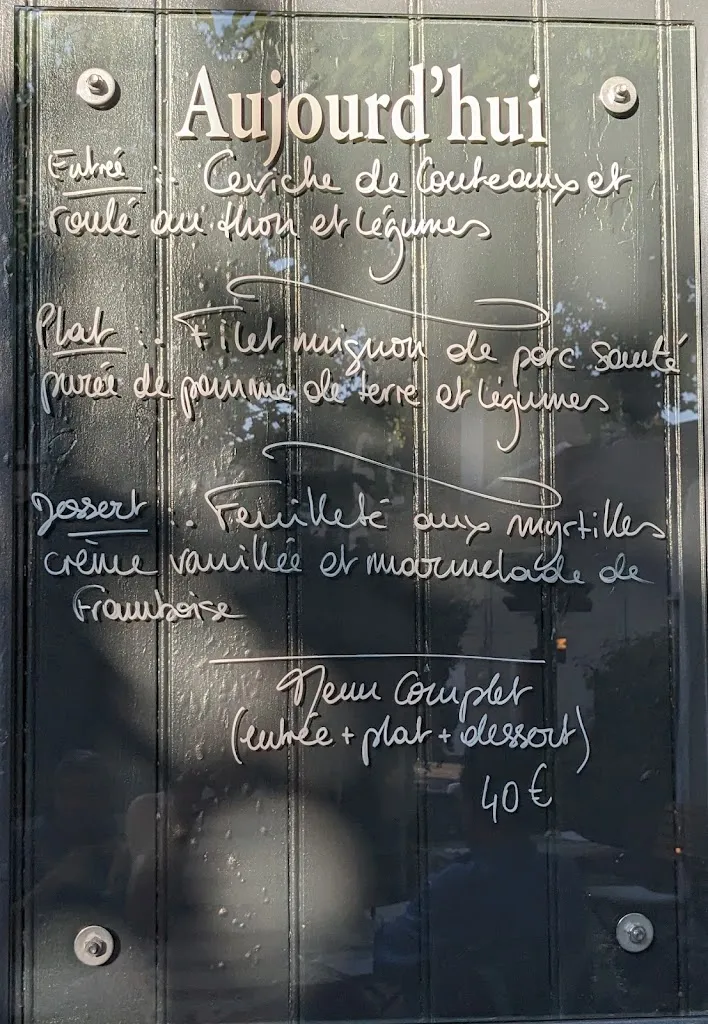 Aujourd'hui
Entrée : Ceviche de Couteaux et
roulé au thon et légumes
Plat : Filet mignon de porc sauté
purée de pomme de terre et légumes
Dessert : Feuilleté aux myrtilles
crème vanillée et marmelade de
Framboise
Menu Complet
(entrée + plat + dessert)
40€